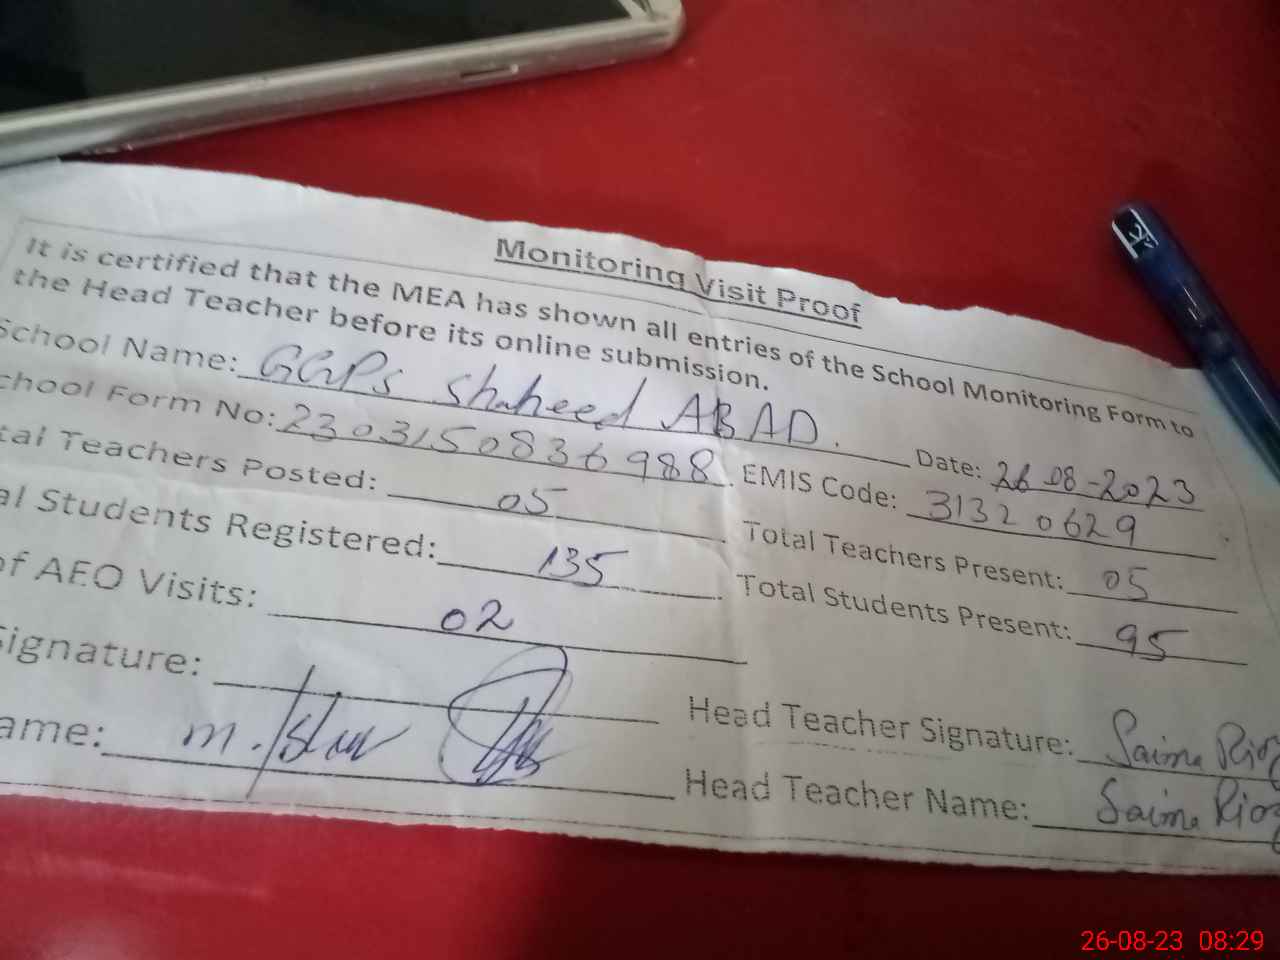 Monitoring Visit Proof
It is certified that the MEA has shown all entries of the School Monitoring Form to
the Head Teacher before its online submission.
School Name: GGPS Shaheed ABAD. Date: 26-08-2023
chool Form No: 2303150836988 EMIS Code: 31320629
tal Teachers Posted: 05 Total Teachers Present: 05
al Students Registered: 135 Total Students Present: 95
of AEO Visits: 02
Signature: Head Teacher Signature: Saima
ame: m. Head Teacher Name: Saima
26-08-23 08:29